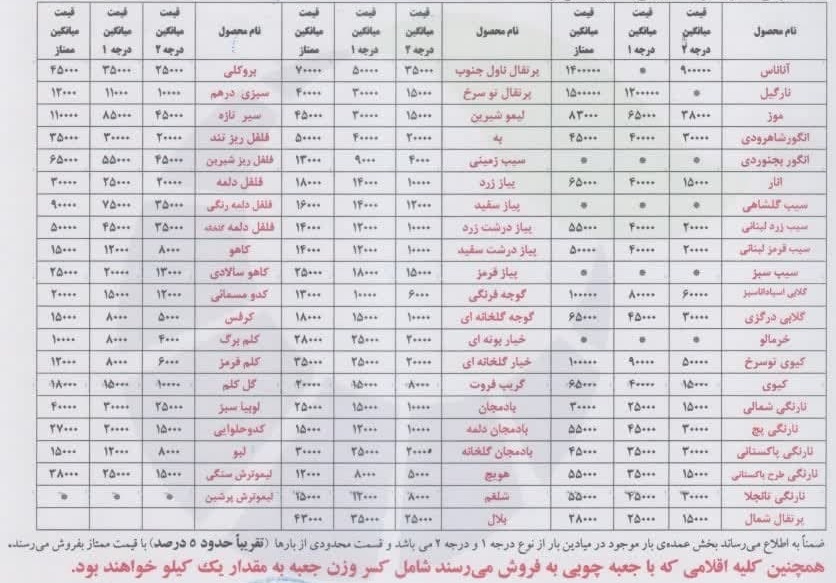 نام محصول | قیمت میانگین درجه ۲ | قیمت میانگین درجه ۱ | قیمت میانگین ممتاز | نام محصول | قیمت میانگین درجه ۲ | قیمت میانگین درجه ۱ | قیمت میانگین ممتاز | نام محصول | قیمت میانگین درجه ۲ | قیمت میانگین درجه ۱ | قیمت میانگین ممتاز
آناناس | ۹۰۰۰۰۰ | * | ۱۴۰۰۰۰۰ | پرتقال ناول جنوب | ۳۵۰۰۰ | ۵۰۰۰۰ | ۷۰۰۰۰ | بروکلی | ۲۵۰۰۰ | ۳۵۰۰۰ | ۴۵۰۰۰
نارگیل | * | ۱۲۰۰۰۰۰ | ۱۵۰۰۰۰۰ | پرتقال تو سرخ | ۱۵۰۰۰ | ۳۰۰۰۰ | ۴۰۰۰۰ | سبزی درهم | ۱۰۰۰۰ | ۱۱۰۰۰ | ۱۲۰۰۰
موز | ۳۸۰۰۰ | ۶۵۰۰۰ | ۸۳۰۰۰ | لیمو شیرین | ۱۵۰۰۰ | ۳۰۰۰۰ | ۴۵۰۰۰ | سیر تازه | ۴۵۰۰۰ | ۸۵۰۰۰ | ۱۱۰۰۰۰
انگورشاهرودی | ۳۰۰۰۰ | ۴۰۰۰۰ | ۴۵۰۰۰ | به | ۲۰۰۰۰ | ۴۰۰۰۰ | ۵۰۰۰۰ | فلفل ریز تند | ۲۰۰۰۰ | ۳۰۰۰۰ | ۳۵۰۰۰
انگور بجنوردی | * | * | * | سیب زمینی | ۴۰۰۰ | ۹۰۰۰ | ۱۳۰۰۰ | فلفل ریز شیرین | ۴۵۰۰۰ | ۵۵۰۰۰ | ۶۵۰۰۰
انار | ۱۵۰۰۰ | ۴۰۰۰۰ | ۶۵۰۰۰ | پیاز زرد | ۱۰۰۰۰ | ۱۴۰۰۰ | ۱۸۰۰۰ | فلفل دلمه | ۲۰۰۰۰ | ۲۵۰۰۰ | ۳۰۰۰۰
سیب گلشاهی | * | * | * | پیاز سفید | ۱۲۰۰۰ | ۱۴۰۰۰ | ۱۶۰۰۰ | فلفل دلمه رنگی | ۳۵۰۰۰ | ۷۵۰۰۰ | ۹۰۰۰۰
سیب زرد لبنانی | ۲۰۰۰۰ | ۴۰۰۰۰ | ۵۵۰۰۰ | پیاز درشت زرد | ۱۰۰۰۰ | ۱۲۰۰۰ | ۱۴۰۰۰ | فلفل دلمه گلخانه | ۳۵۰۰۰ | ۴۵۰۰۰ | ۵۰۰۰۰
سیب قرمز لبنانی | ۲۰۰۰۰ | ۴۰۰۰۰ | ۵۰۰۰۰ | پیاز درشت سفید | ۱۰۰۰۰ | ۱۲۰۰۰ | ۱۴۰۰۰ | کاهو | ۸۰۰۰ | ۱۲۰۰۰ | ۱۵۰۰۰
سیب سبز | * | * | * | پیاز قرمز | ۱۵۰۰۰ | ۱۸۰۰۰ | ۲۵۰۰۰ | کاهو سالادی | ۱۳۰۰۰ | ۲۰۰۰۰ | ۲۵۰۰۰
گلابی اسپاداناسبز | ۶۰۰۰۰ | ۸۰۰۰۰ | ۱۰۰۰۰۰ | گوجه فرنگی | ۶۰۰۰ | ۱۰۰۰۰ | ۱۳۰۰۰ | کدو مسمائی | ۱۲۰۰۰ | ۱۵۰۰۰ | ۲۰۰۰۰
گلابی درگزی | ۳۰۰۰۰ | ۴۵۰۰۰ | ۶۵۰۰۰ | گوجه گلخانه ای | ۱۰۰۰۰ | ۱۵۰۰۰ | ۱۸۰۰۰ | کرفس | ۵۰۰۰ | ۸۰۰۰ | ۱۵۰۰۰
خرمالو | * | * | * | خیار بوته ای | ۲۰۰۰۰ | ۲۵۰۰۰ | ۲۸۰۰۰ | کلم برگ | ۴۰۰۰ | ۸۰۰۰ | ۱۰۰۰۰
کیوی توسرخ | ۵۰۰۰۰ | ۹۰۰۰۰ | ۱۰۰۰۰۰ | خیار گلخانه ای | ۲۰۰۰۰ | ۲۵۰۰۰ | ۳۵۰۰۰ | کلم قرمز | ۶۰۰۰ | ۸۰۰۰ | ۱۲۰۰۰
کیوی | ۱۵۰۰۰ | ۴۰۰۰۰ | ۶۵۰۰۰ | گریپ فروت | ۸۰۰۰ | ۱۵۰۰۰ | ۲۰۰۰۰ | گل کلم | ۱۰۰۰۰ | ۱۵۰۰۰ | ۱۸۰۰۰
نارنگی شمالی | ۱۵۰۰۰ | ۲۵۰۰۰ | ۳۰۰۰۰ | بادمجان | ۱۰۰۰۰ | ۱۵۰۰۰ | ۲۵۰۰۰ | لوبیا سبز | ۲۵۰۰۰ | ۳۰۰۰۰ | ۴۰۰۰۰
نارنگی پیج | ۳۰۰۰۰ | ۴۵۰۰۰ | ۵۵۰۰۰ | بادمجان دلمه | ۱۰۰۰۰ | ۱۲۰۰۰ | ۱۵۰۰۰ | کدوحلوایی | ۱۵۰۰۰ | ۲۰۰۰۰ | ۲۷۰۰۰
نارنگی پاکستانی | ۳۰۰۰۰ | ۳۵۰۰۰ | ۴۵۰۰۰ | بادمجان گلخانه | ۲۰۰۰۰ | ۲۵۰۰۰ | ۳۰۰۰۰ | لبو | ۸۰۰۰ | ۱۲۰۰۰ | ۱۵۰۰۰
نارنگی طرح پاکستانی | ۱۵۰۰۰ | ۳۵۰۰۰ | ۵۵۰۰۰ | هویج | ۵۰۰۰ | ۸۰۰۰ | ۱۲۰۰۰ | لیموترش سنگی | ۱۵۰۰۰ | ۲۵۰۰۰ | ۳۸۰۰۰
نارنگی تانجلا | ۳۰۰۰۰ | ۴۵۰۰۰ | ۵۵۰۰۰ | شلغم | ۸۰۰۰ | ۱۲۰۰۰ | ۱۵۰۰۰ | لیموترش پرشین | * | * | *
پرتقال شمال | ۱۵۰۰۰ | ۲۵۰۰۰ | ۲۸۰۰۰ | بلال | ۲۵۰۰۰ | ۳۵۰۰۰ | ۴۳۰۰۰
ضمناً به اطلاع می‌رساند بخش عمده‌ی بار موجود در میادین بار از نوع درجه ۱ و درجه ۲ می باشد و قسمت محدودی از بارها (تقریباً حدود ۵ درصد) با قیمت ممتاز بفروش می‌رسند.
همچنین کلیه اقلامی که با جعبه چوبی به فروش می‌رسند شامل کسر وزن جعبه به مقدار یک کیلو خواهند بود.